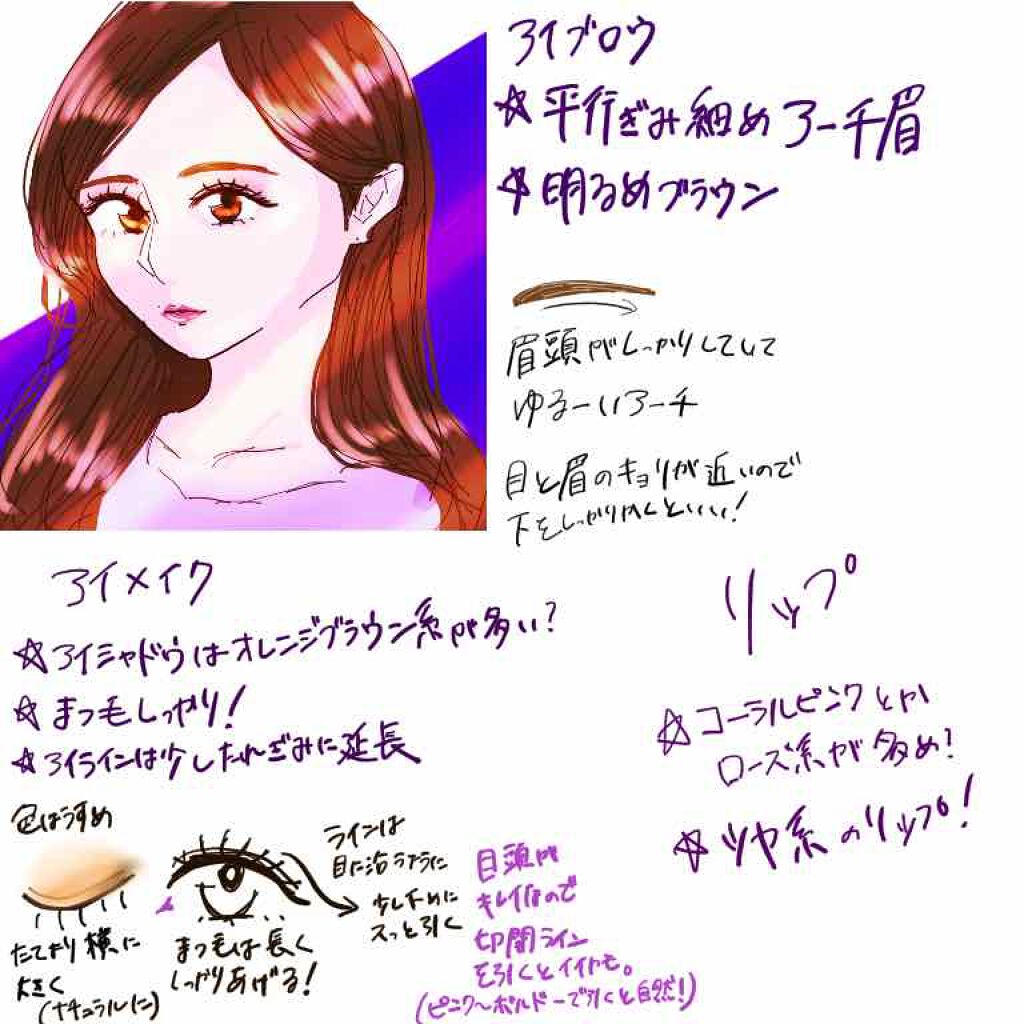 アイブロウ
☆平行ぎみ細めアーチ眉
☆明るめブラウン
眉頭がしっかりしていて
ゆるーいアーチ
目と眉のキョリが近いので
下をしっかりかくといい!
アイメイク
☆アイシャドウはオレンジブラウン系が多い?
☆まつ毛しっかり!
☆アイラインは少したれぎみに延長
色はうすめ
たてより横に
大きく
(ナチュラルに)
まつ毛は長く
しっかりあげる!
ラインは
目に沿うように
少し下めに
スッと引く
目頭が
キレイなので
切開ライン
を引くとイイかも。
(ピンク〜ボルドーで引くと自然!)
リップ
☆コーラルピンクとか
ローズ系が多め?
☆ツヤ系のリップ!